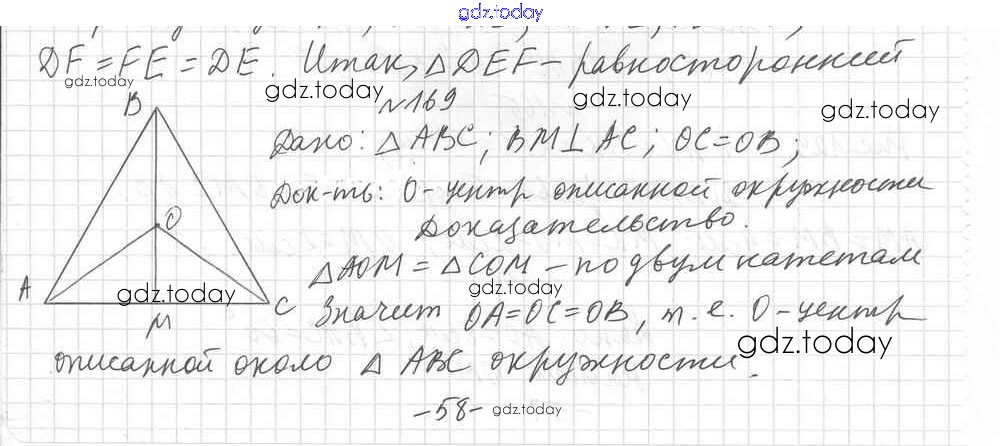 gdz.today
DF = FE = DE. Итак, △DEF – равносторонний
gdz.today
gdz.today
gdz.today
gdz.today
№169
B
Дано: △ABC; BM⊥AC; OC=OB;
Док-ть: O-центр описанной окружности
Доказательство.
O
△AOM = △COM – по двум катетам
A
gdz.today
gdz.today
C
M
Значит OA=OC=OB, т. е. O-центр
gdz.today
описанной около △ABC окружности.
-58-
gdz.today